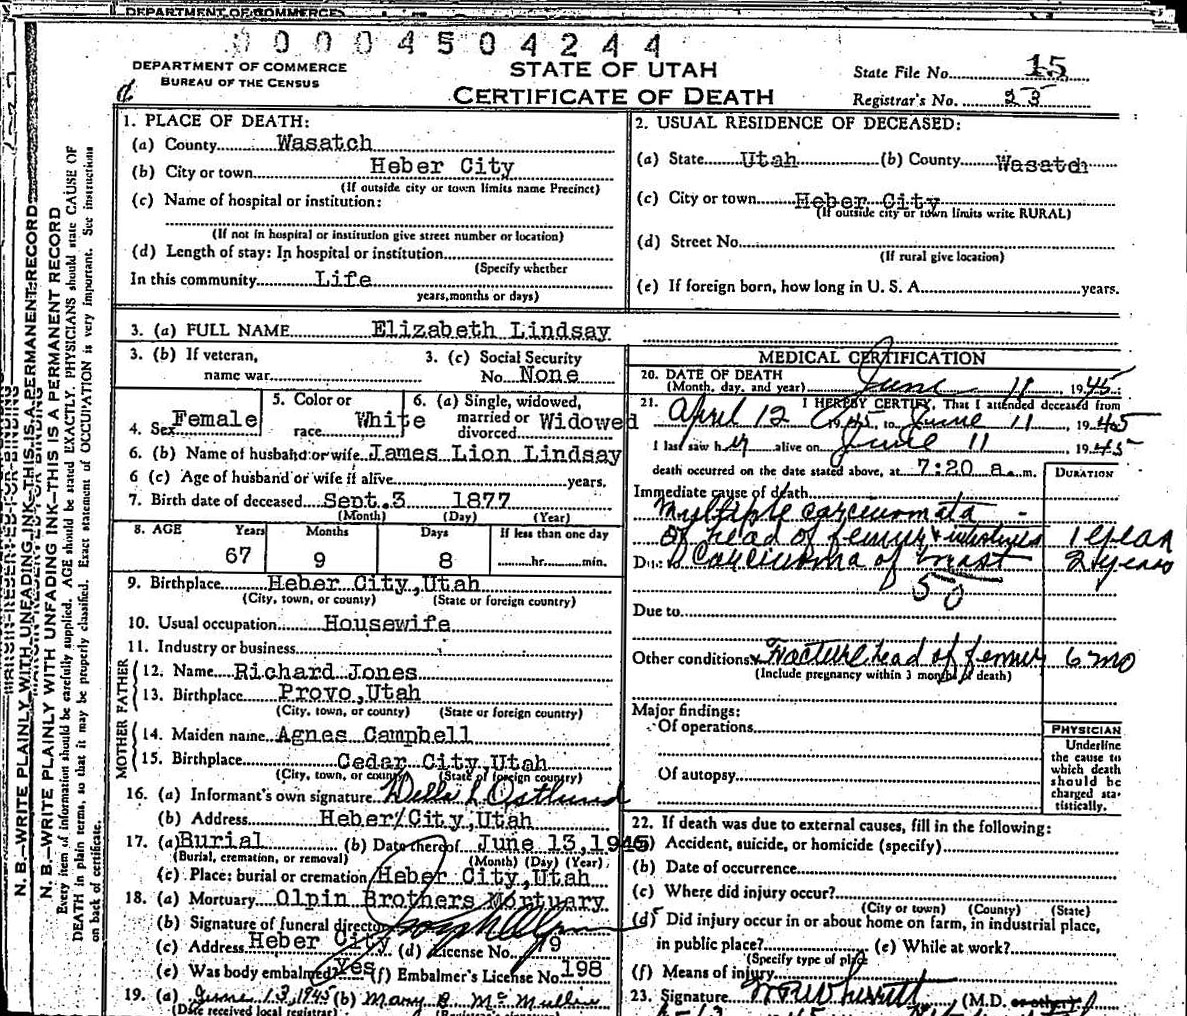 DEPARTMENT OF COMMERCE
00004504244
DEPARTMENT OF COMMERCE
BUREAU OF THE CENSUS
STATE OF UTAH
CERTIFICATE OF DEATH
State File No. 15
Registrar's No. 23
N. B.—WRITE PLAINLY WITH UNFADING INK—THIS IS A PERMANENT RECORD
N. B.—WRITE PLAINLY WITH UNFADING INK—THIS IS A PERMANENT RECORD
Every item of information should be carefully supplied. AGE should be stated EXACTLY. PHYSICIANS should state CAUSE OF
DEATH in plain terms, so that it may be properly classified. Exact statement of OCCUPATION is very important. See instructions
on back of certificate.
1. PLACE OF DEATH:
(a) County Wasatch
(b) City or town Heber City
(If outside city or town limits name Precinct)
(c) Name of hospital or institution:
(If not in hospital or institution give street number or location)
(d) Length of stay: In hospital or institution
(Specify whether
In this community Life
years, months or days)
2. USUAL RESIDENCE OF DECEASED:
(a) State Utah (b) County Wasatch
(c) City or town Heber City
(If outside city or town limits write RURAL)
(d) Street No.
(If rural give location)
(e) If foreign born, how long in U. S. A. years.
3. (a) FULL NAME Elizabeth Lindsay
3. (b) If veteran,
name war
3. (c) Social Security
No. None
4. Sex Female
5. Color or
race White
6. (a) Single, widowed,
married or
divorced Widowed
6. (b) Name of husband or wife James Lion Lindsay
6 (c) Age of husband or wife if alive years.
7. Birth date of deceased Sept. 3 1877
(Month) (Day) (Year)
8. AGE Years Months Days If less than one day
67 9 8 hr. min.
9. Birthplace Heber City, Utah
(City, town, or county) (State or foreign country)
10. Usual occupation Housewife
11. Industry or business
FATHER
12. Name Richard Jones
13. Birthplace Provo, Utah
(City, town, or county) (State or foreign country)
MOTHER
14. Maiden name Agnes Campbell
15. Birthplace Cedar City, Utah
(City, town, or county) (State or foreign country)
16. (a) Informant's own signature Della L Ostlund
(b) Address Heber City, Utah
17. (a) Burial (b) Date thereof June 13, 1945
(Burial, cremation, or removal) (Month) (Day) (Year)
(c) Place: burial or cremation Heber City, Utah
18. (a) Mortuary Olpin Brothers Mortuary
(b) Signature of funeral director
(c) Address Heber City (d) License No. 79
(e) Was body embalmed? Yes (f) Embalmer's License No. 198
19. (a) June 13, 1945 (b) Mary B. McMullin
(Date received local registrar) (Registrar's signature)
MEDICAL CERTIFICATION
20. DATE OF DEATH
(Month, day, and year) June 11, 1945
21. I HEREBY CERTIFY, That I attended deceased from
April 12 1945, to June 11, 1945
I last saw her alive on June 11 1945
death occurred on the date stated above, at 7:20 a. m.
DURATION
Immediate cause of death
Multiple carcinomata -
of head of femur & intestines 1 year
Due to Carcinoma of breast 2 years
50
Due to
Other conditions Fracture head of femur 6 mo
(Include pregnancy within 3 months of death)
Major findings:
Of operations
Of autopsy
PHYSICIAN
Underline
the cause to
which death
should be
charged sta-
tistically.
22. If death was due to external causes, fill in the following:
(a) Accident, suicide, or homicide (specify)
(b) Date of occurrence
(c) Where did injury occur?
(City or town) (County) (State)
(d) Did injury occur in or about home on farm, in industrial place,
in public place? (e) While at work?
(Specify type of place
(f) Means of injury
23. Signature (M.D. or other)